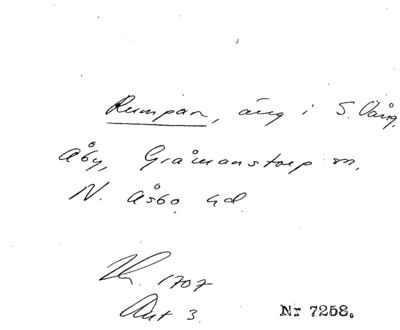 Rumpan, äng i S. Vång,
Åby, Gråmanstorp sn,
N. Åsbo hd
1707
Akt 3.
Nr 7258.